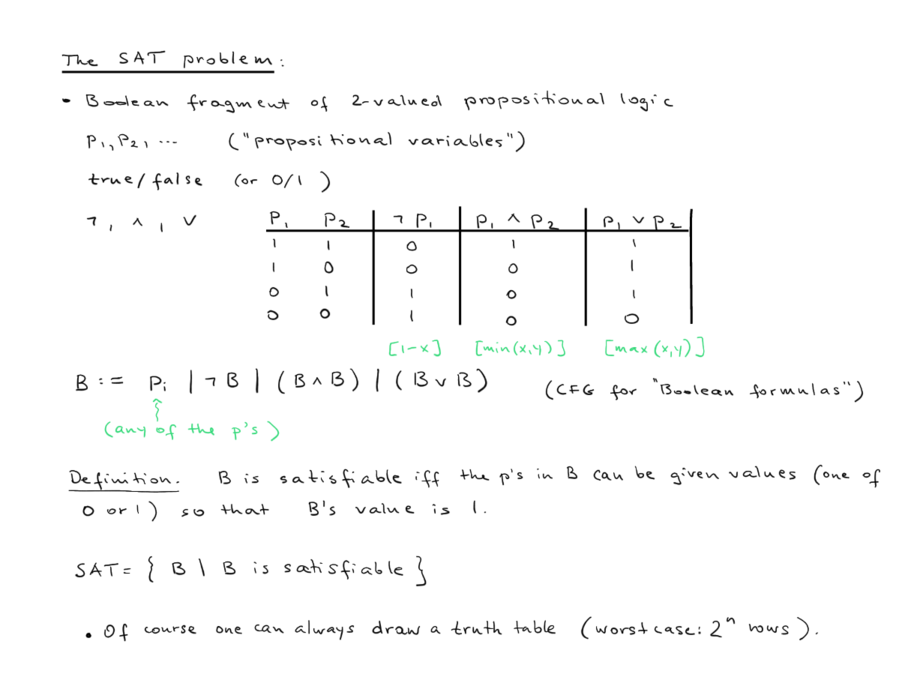 The SAT problem:
• Boolean fragment of 2-valued propositional logic
P₁, P₂, ... ("propositional variables")
true/false (or 0/1)
¬, ∧, ∨
P₁ P₂ ¬P₁ P₁ ∧ P₂ P₁ ∨ P₂
1 1 0 1 1
1 0 0 0 1
0 1 1 0 1
0 0 1 0 0
[1-x] [min(x,y)] [max(x,y)]
B := Pᵢ | ¬B | (B ∧ B) | (B ∨ B) (CFG for "Boolean formulas")
(any of the p's)
Definition. B is satisfiable iff the p's in B can be given values (one of
0 or 1) so that B's value is 1.
SAT = { B \ B is satisfiable }
• Of course one can always draw a truth table (worst case: 2ⁿ rows).